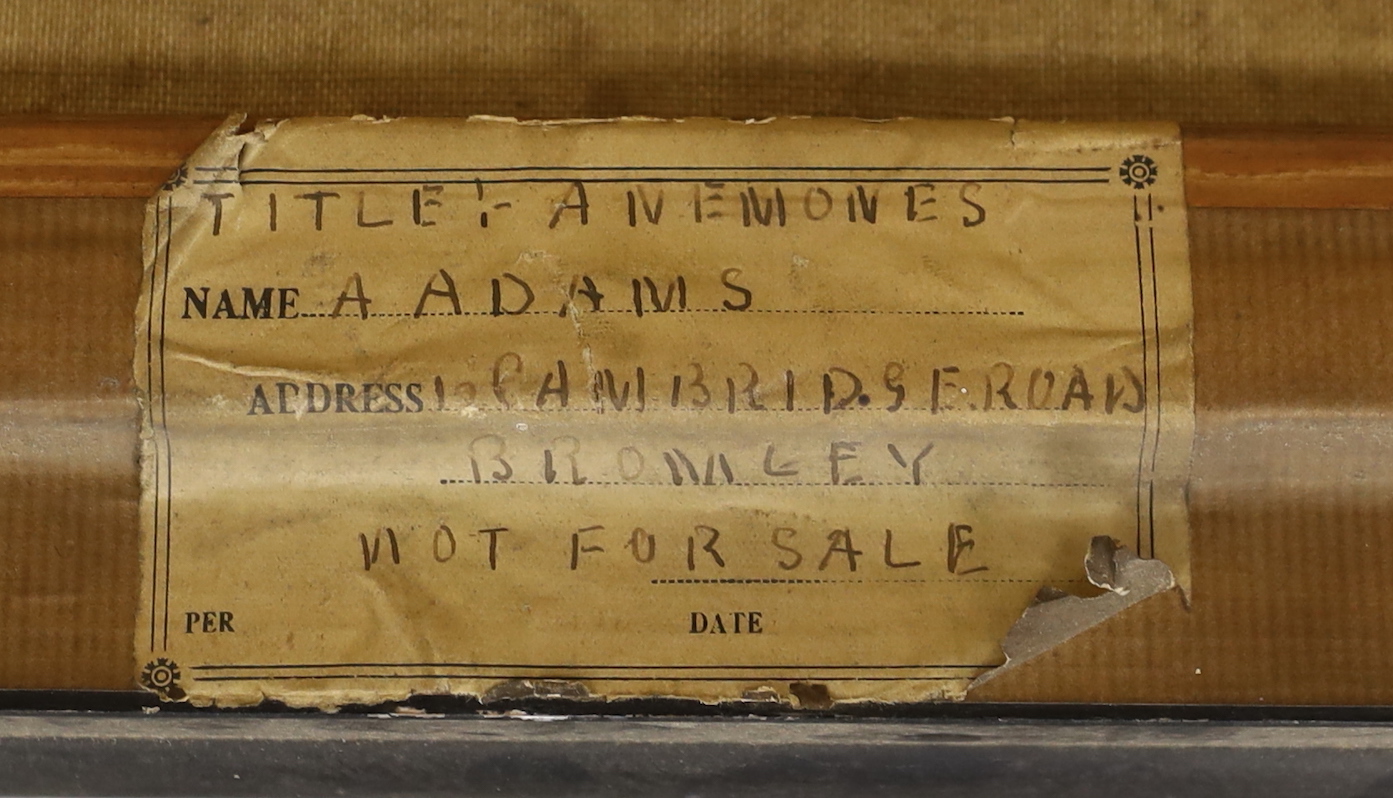 TITLE:- ANEMONES
NAME A ADAMS
ADDRESS CAMBRIDGE ROAD
BROMLEY
NOT FOR SALE
PER DATE